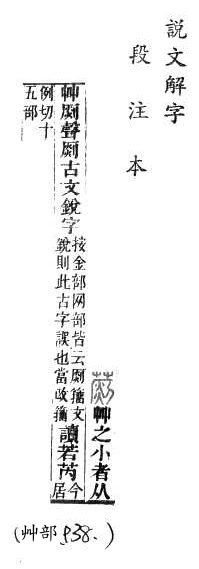 說文解字
段注本
艸之小者从
艸㓹聲㓹古文銳字
按金部网部皆云㓹籒文
銳則此古字誤也當改籒
讀若芮
今
居
例切十
五部
(艸部 P38.)